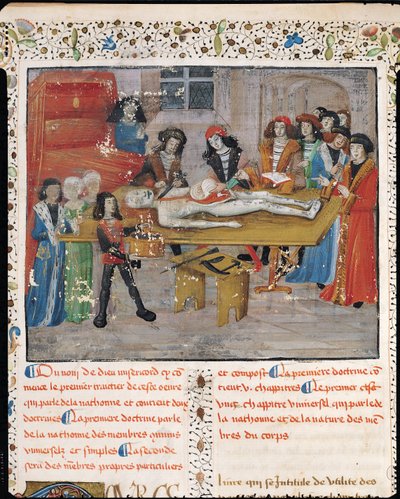 Du nom de dieu misericord cy co
mence le premier traictier de ceste oeuure
qui parle de la nathomie et contient deux
doctrines La premiere doctrine parle
de la nathomie des membres quiuis
vniuerselz et simples La seconde
sera des mebres propres particuliers
et compost La premiere doctrine co
tient v. chappitres Le premier est
vng chappitre vniuersel qui parle de
la nathomie et de la nature des me
bres du corps
liure qui se Intitule de vtilite des